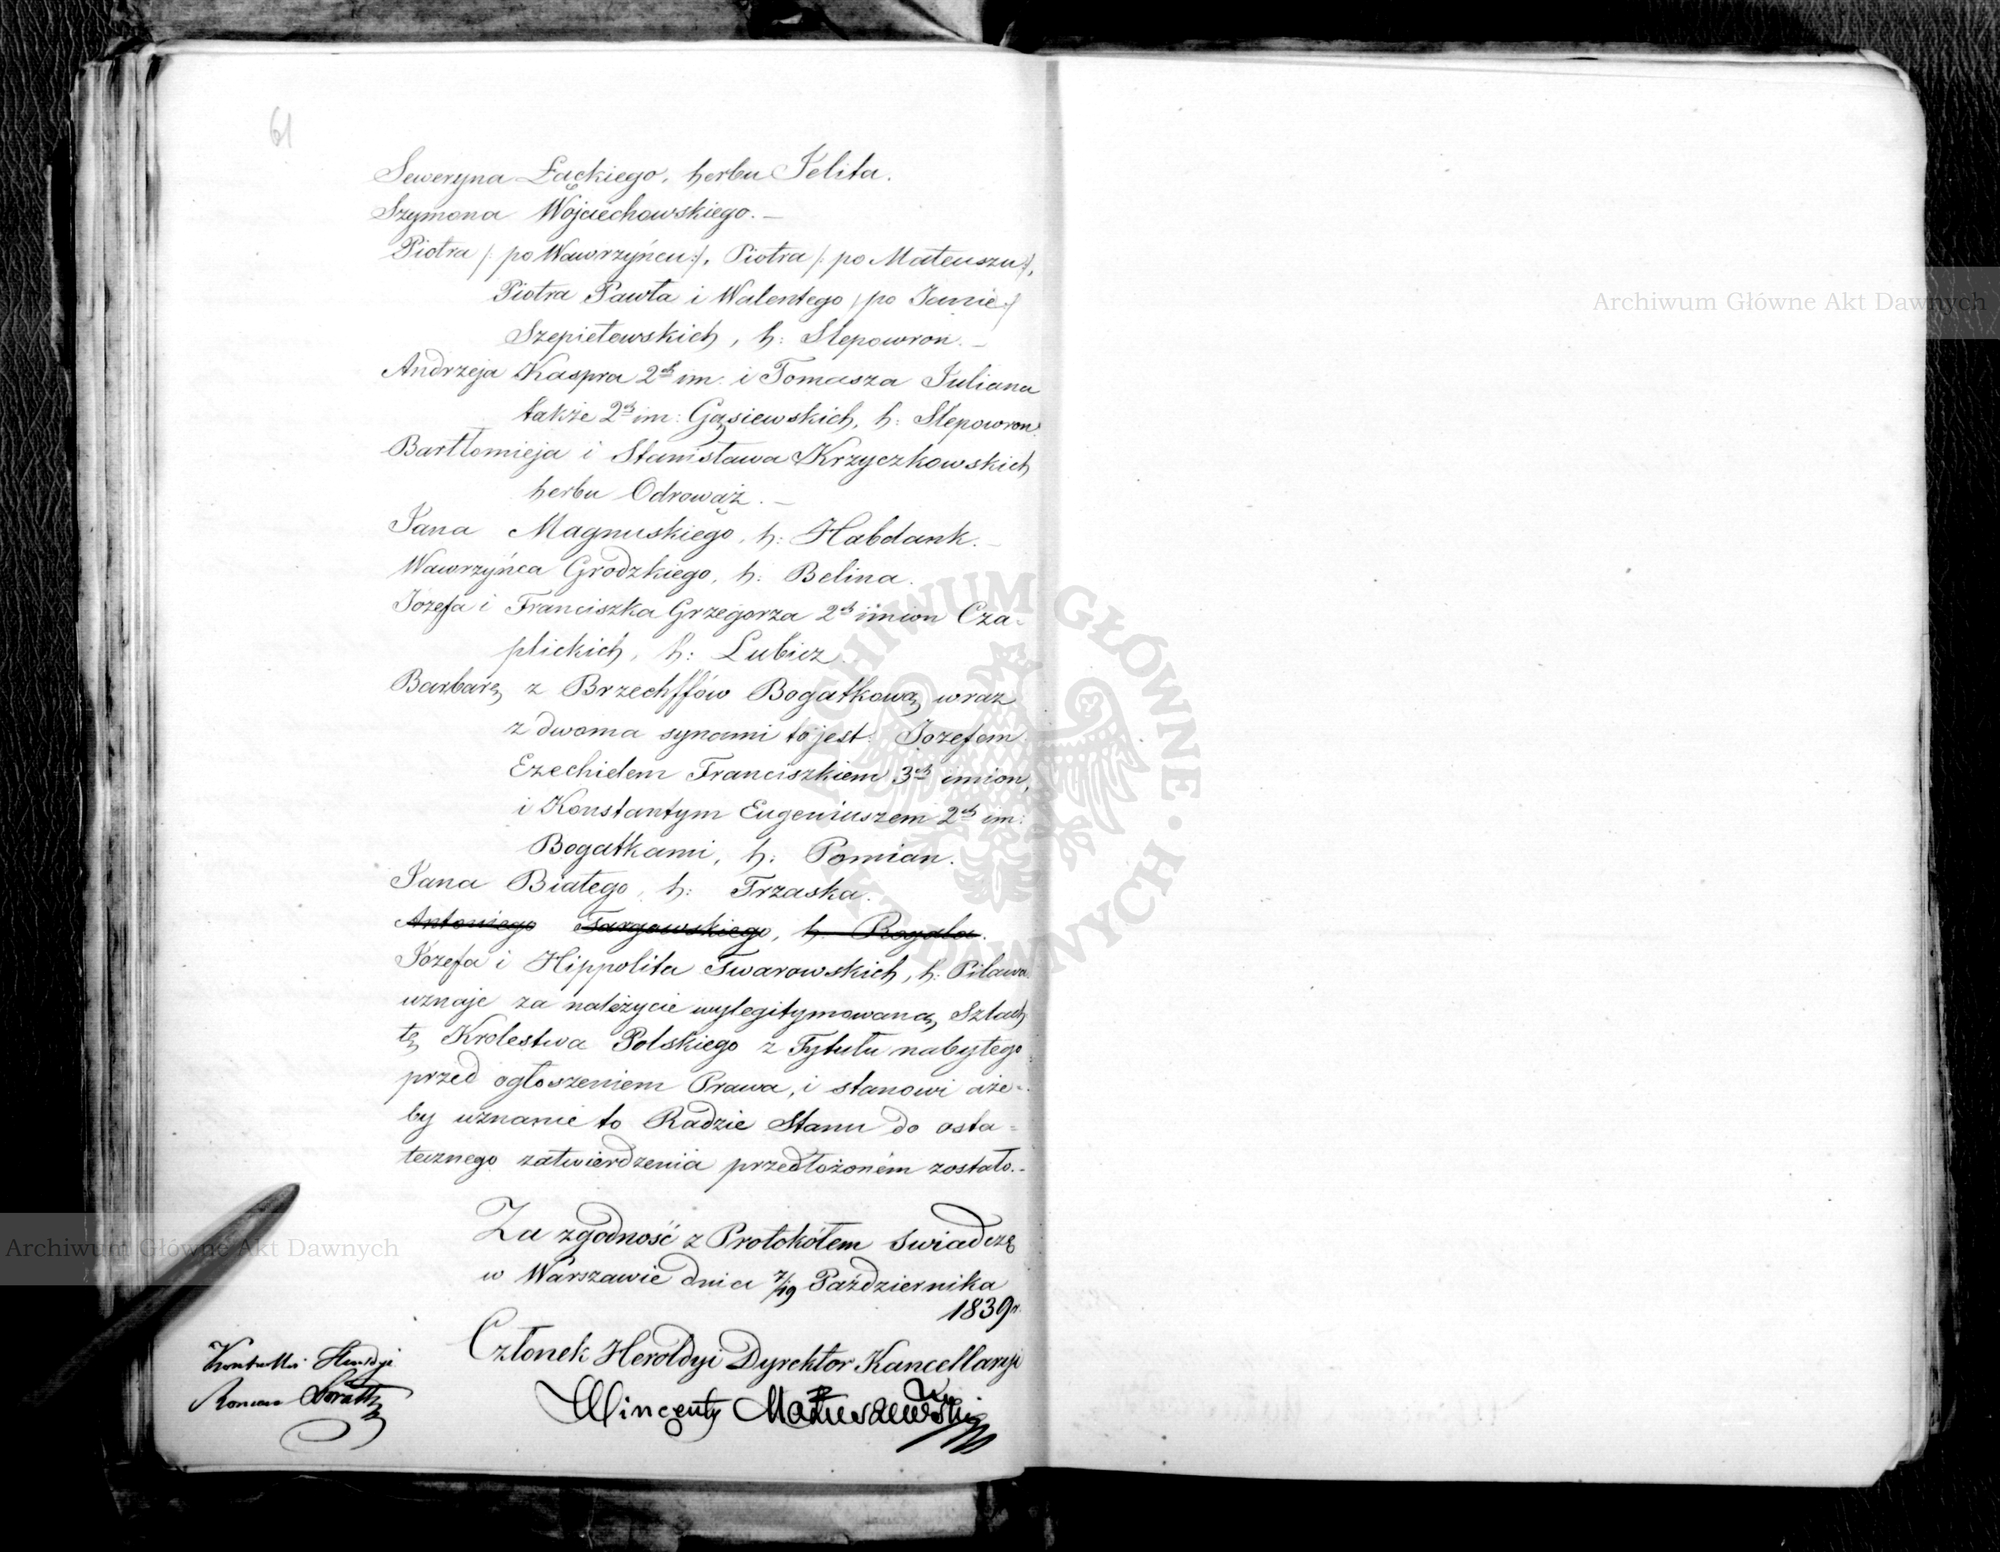 61
Seweryna Łąckiego, herbu Jelita.
Szymona Wojciechowskiego. –
Piotra /: po Wawrzyńcu :/, Piotra /: po Mateuszu :/,
Piotra Pawła i Walentego /: po Janie :/
Szepietowskich, h: Slepowron. –
Andrzeja Kaspra 2ch im. i Tomasza Juliana
także 2ch im: Gąsiewskich, h: Slepowron.
Bartłomieja i Stanisława Krzyczkowskich
herbu Odrowąż. –
Jana Magnuskiego, h: Habdank. –
Wawrzyńca Grodzkiego, h: Belina.
Józefa i Franciszka Grzegorza 2ch imion Cza=
plickich, h: Lubicz.
Barbarę z Brzechffów Bogatkową wraz
z dwoma synami to jest: Józefem
Ezechielem Franciszkiem 3ch imion,
i Konstantym Eugeniuszem 2ch im:
Bogatkami, h: Pomian.
Jana Białego, h: Trzaska.
Antoniego Targowskiego, h. Rogala.
Józefa i Hippolita Twarowskich, h: Pilawa
uznaje za należycie wylegitymowaną Szlach
tę Krolestwa Polskiego z Tytułu nabytego
przed ogłoszeniem Prawa, i stanowi aże=
by uznanie to Radzie Stanu do osta=
tecznego zatwierdzenia przedłożoném zostało. –
Za zgodność z Protokółem świadczę
w Warszawie dnia 7/19 Października
1839 r.
Członek Heroldyi Dyrektor Kancellaryi
Wincenty Matuszewski
Kontroller Heroldyi
Roman
Archiwum Główne Akt Dawnych
Archiwum Główne Akt Dawnych
ARCHIWUM GŁÓWNE · AKT DAWNYCH ·